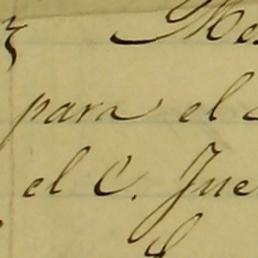 Me
para el
el C. Jue